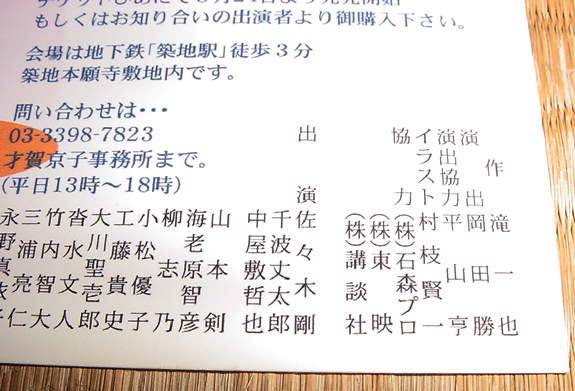 もしくはお知り合いの出演者より御購入下さい。
会場は地下鉄「築地駅」徒歩３分
築地本願寺敷地内です。
問い合わせは・・・
03-3398-7823
才賀京子事務所まで。
(平日13時〜18時)
作 滝一也
演出 岡田勝
演出協力 平山亨
イラスト 村枝賢一
協力 (株)石森プロ
(株)東映
(株)講談社
出演 佐々木剛
千波丈太郎
中屋敷哲也
山本剣
海老原智彦
柳志乃
小松優子
工藤貴史
大川聖壱郎
沓水文人
竹内智大
三浦亮仁